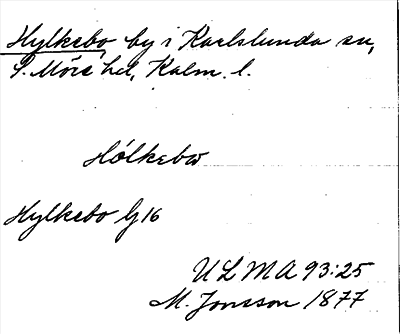 Hylkebo by i Karlslunda sn,
S. Möre hd, Kalm. l.
Hólkebω
Hylkebo G16
ULMA 93:25
M. Jonsson 1877